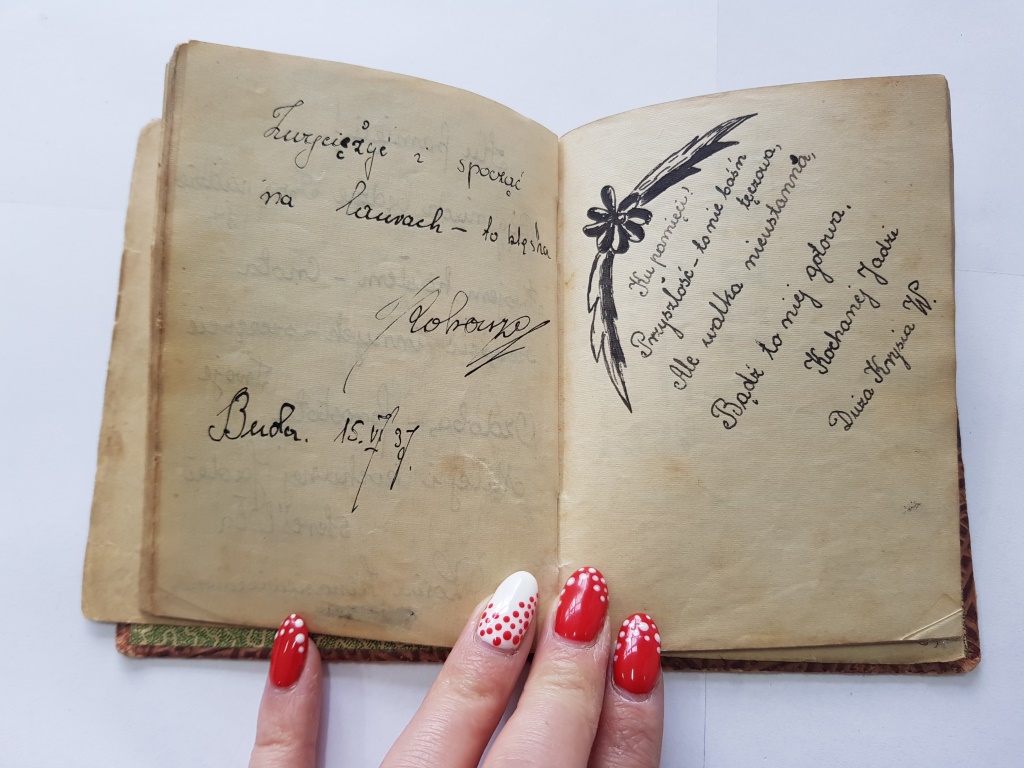 Zwyciężyć i spocząć
na laurach – to klęska
Buda. 15.VI 37 r.
Ku pamięci!
Przyszłość – to nie baśń
tęczowa,
Ale walka nieustanna,
Bądź to niej gotowa.
Kochanej Jadzi
Duża Krysia W.